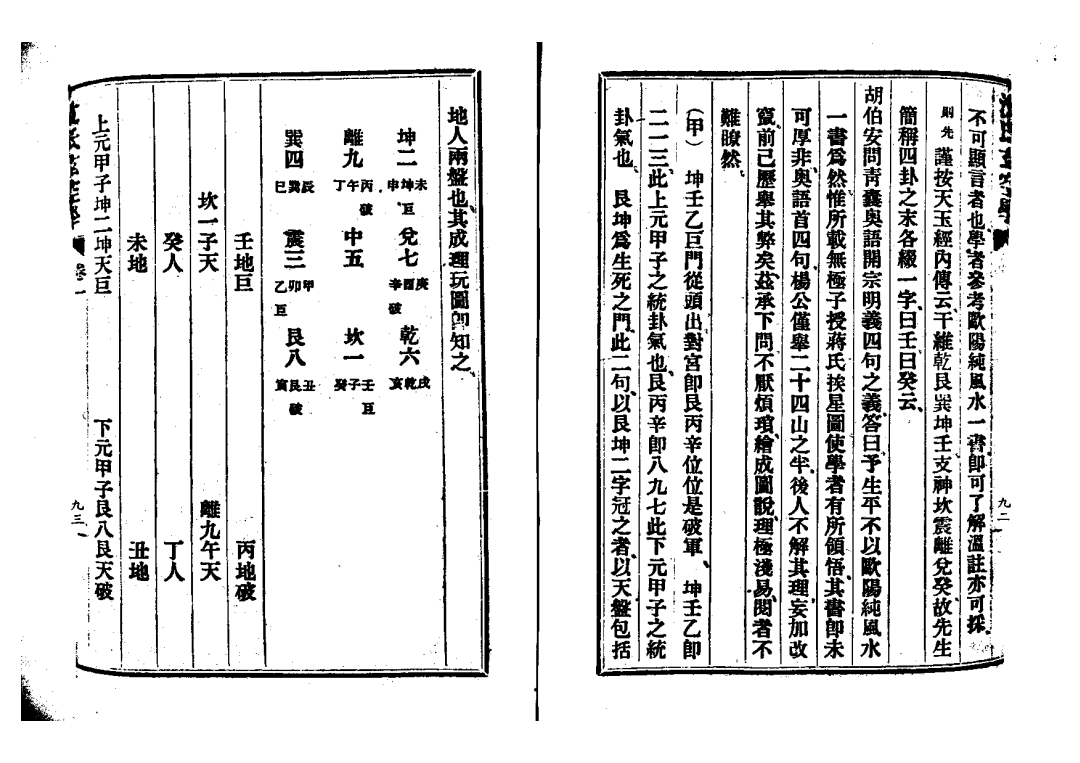 不可顯言者也學者參考歐陽純風水一書卽可了解溫註亦可採
則先謹按天玉經內傳云干維乾艮巽坤壬支神坎震離兌癸故先生
簡稱四卦之末各綴一字曰壬曰癸云
胡伯安問靑囊奧語開宗明義四句之義答曰予生平不以歐陽純風水
一書爲然惟所載無極子授蔣氏挨星圖使學者有所領悟其書卽未
可厚非奧語首四句楊公僅舉二十四山之半後人不解其理妄加改
竄前已歷舉其弊矣茲承下問不厭煩瑣繪成圖說理極淺易閱者不
難瞭然
(甲) 坤壬乙巨門從頭出對宮卽艮丙辛位位是破軍、坤壬乙卽
二一三此上元甲子之統卦氣也艮丙辛卽八九七此下元甲子之統
卦氣也 艮坤爲生死之門此二句以艮坤二字冠之者以天盤包括
九二
地人兩盤也其成理玩圖卽知之
坤二 未坤申 巨 兌七 庚酉辛 破 乾六 戌乾亥
離九 丙午丁 破 中五 坎一 壬子癸 巨
巽四 辰巽巳 震三 甲卯乙 巨 艮八 丑艮寅 破
壬地巨 丙地破
坎一子天 離九午天
癸人 丁人
未地 丑地
上元甲子坤二坤天巨 下元甲子艮八艮天破
卷一
九三